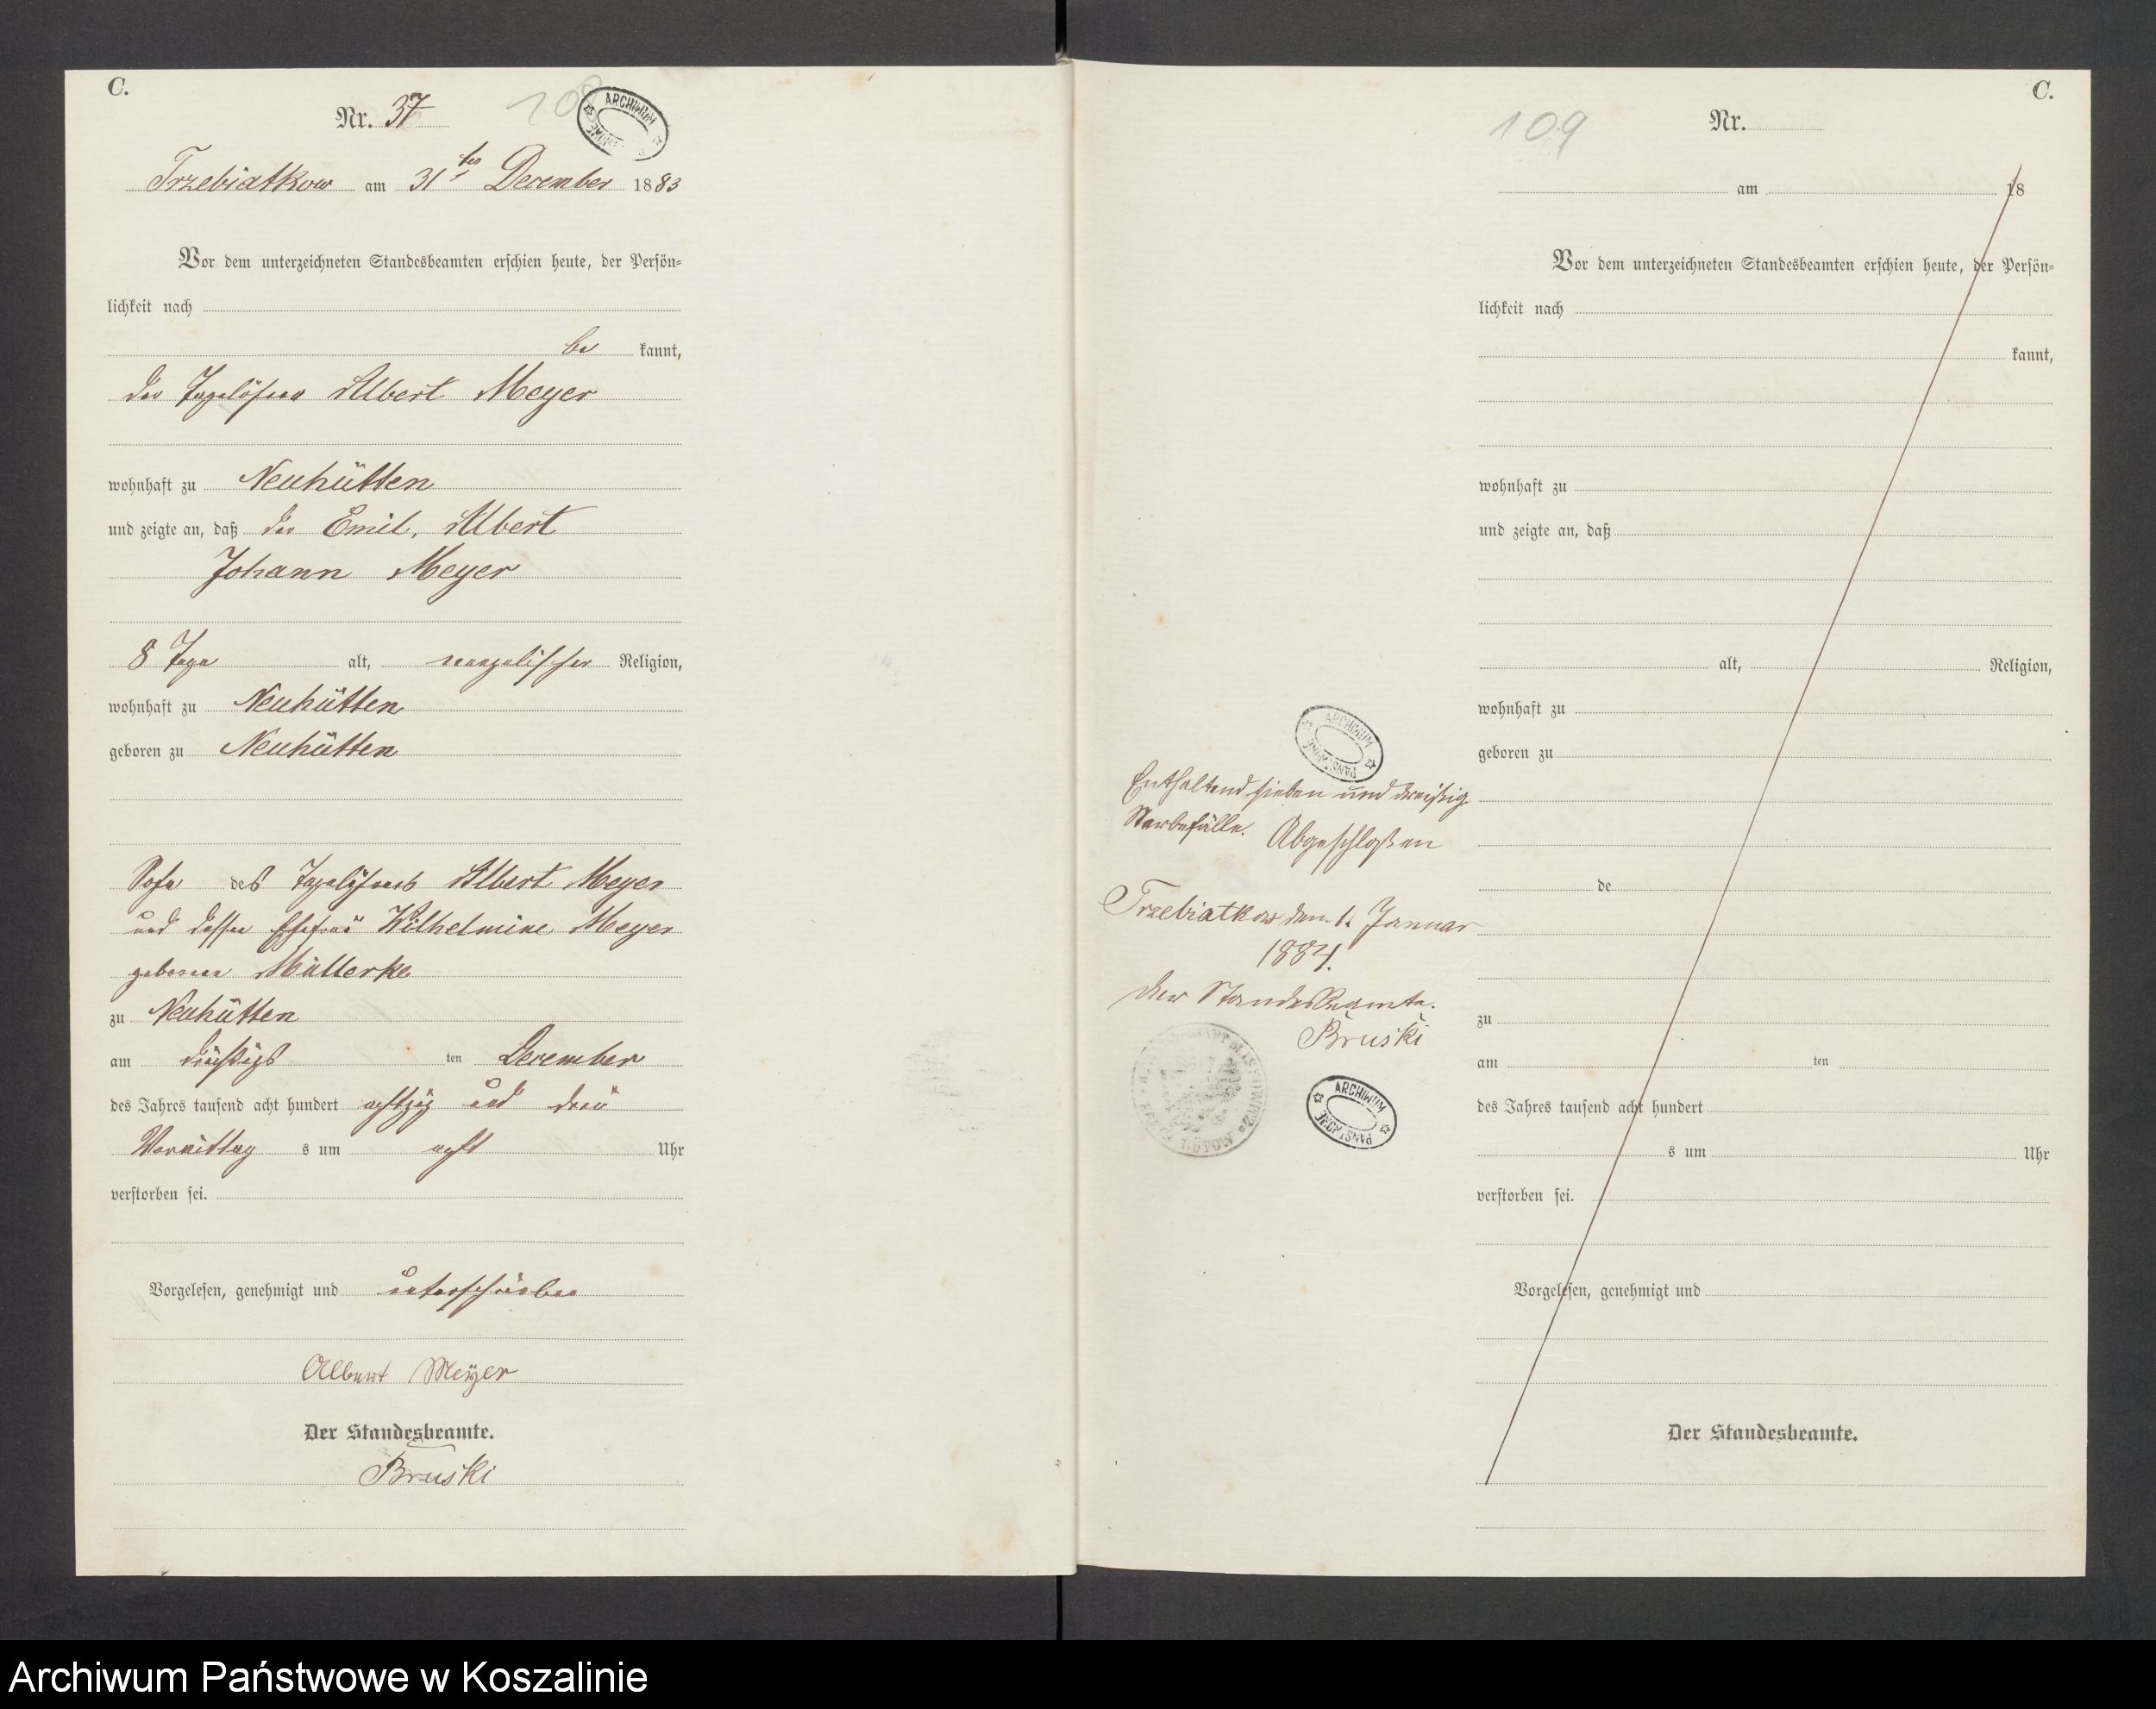 C.
Nr. 37
108
ARCHIWUM
Trzebiatkow am 31ten December 1883
Vor dem unterzeichneten Standesbeamten erschien heute, der Persön-
lichkeit nach
be kannt,
der Tagelöhner Albert Meyer
wohnhaft zu Neuhütten
und zeigte an, daß der Emil, Albert
Johann Meyer
8 Tage alt, evangelischer Religion,
wohnhaft zu Neuhütten
geboren zu Neuhütten
Sohn des Tagelöhners Albert Meyer
und dessen Ehefrau Wilhelmine Meyer
geborene Müllerke
zu Neuhütten
am dreißigs ten December
des Jahres tausend acht hundert achtzig und drei
Vormittag s um acht Uhr
verstorben sei.
Vorgelesen, genehmigt und unterschrieben
Albert Meyer
Der Standesbeamte.
Bruski
C.
109
Nr.
am 18
Vor dem unterzeichneten Standesbeamten erschien heute, der Persön-
lichkeit nach
kannt,
wohnhaft zu
und zeigte an, daß
alt, Religion,
wohnhaft zu
geboren zu
de
zu
am ten
des Jahres tausend acht hundert
s um Uhr
verstorben sei.
Vorgelesen, genehmigt und
Der Standesbeamte.
ARCHIWUM PAŃSTWOWE
Enthaltend sieben und dreißig
Sterbefälle. Abgeschloßen
Trzebiatkow den 1. Januar
1884.
Der Standesbeamte.
Bruski
ARCHIWUM PAŃSTWOWE
Archiwum Państwowe w Koszalinie